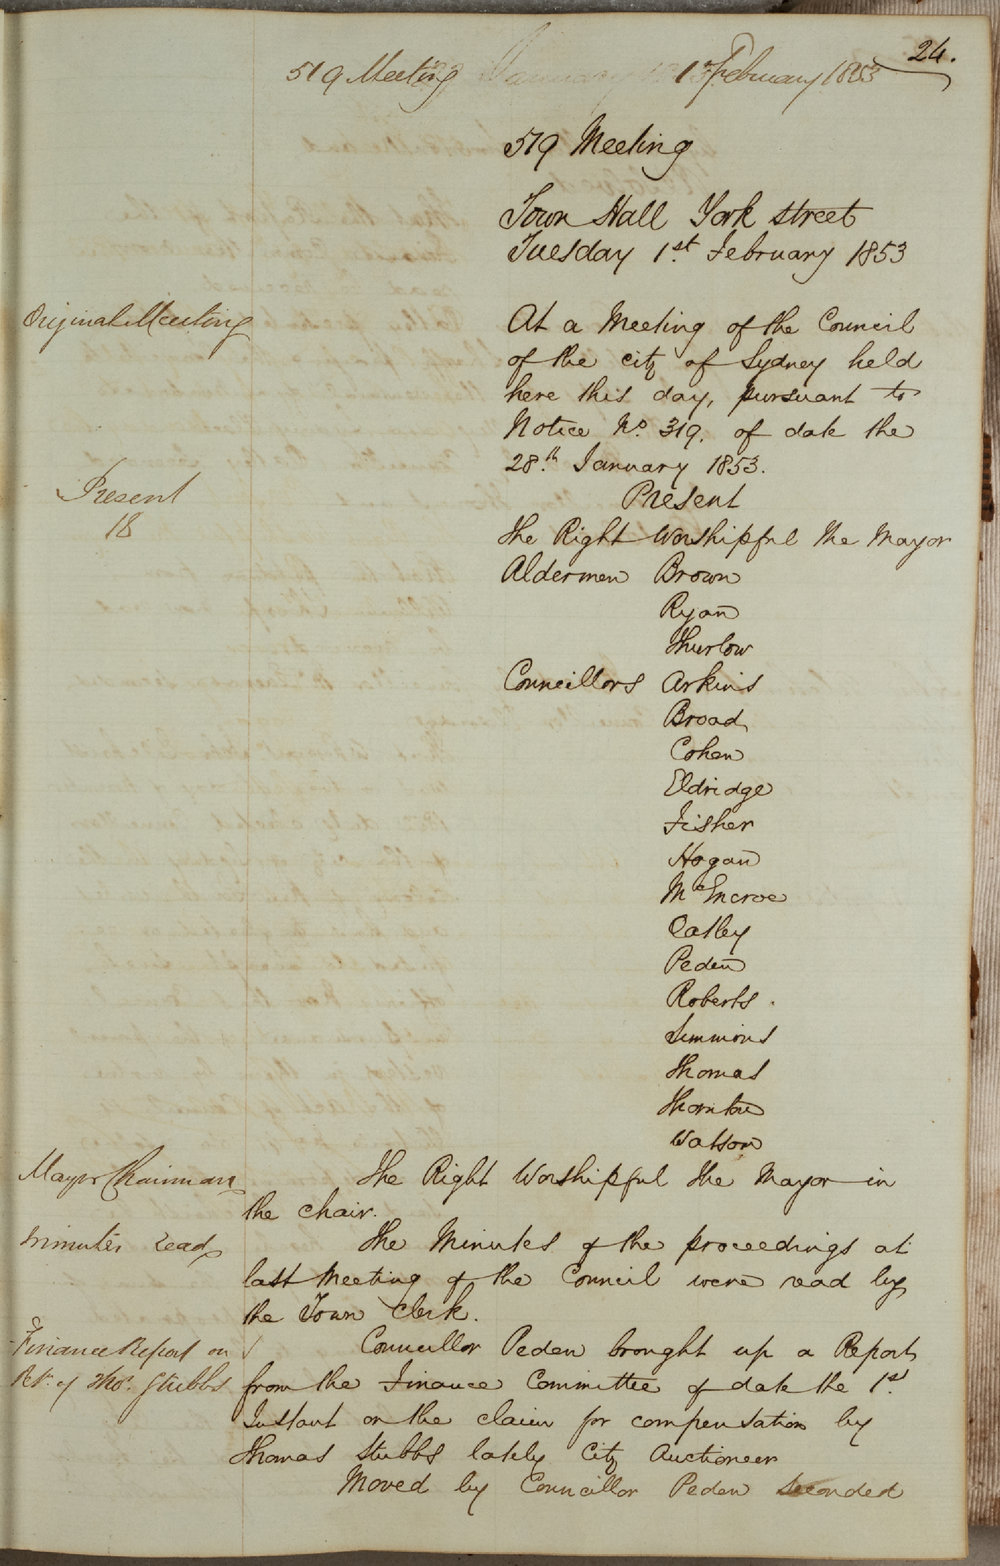 24.
519 Meeting 1st February 1853
519 Meeting
Town Hall York street
Tuesday 1st. February 1853
Original Meeting
At a Meeting of the Council
of the city of Sydney held
here this day, pursuant to
Notice No. 319. of date the
28.th January 1853.
Present
18
Present
The Right Worshipful the Mayor
Aldermen Brown
Ryan
Thurlow
Councillors Arkins
Broad
Cohen
Eldridge
Fisher
Hogan
McEncroe
Oatley
Peden
Roberts.
Simmons
Thomas
Thornton
Watson
Mayor Chairman
The Right Worshipful the Mayor in
the chair.
Minutes read
The Minutes of the proceedings at
last Meeting of the Council were read by
the Town Clerk.
Finance Report on
Pet. of Thos. Stubbs
Councillor Peden brought up a Report
from the Finance Committee of date the 1st.
Instant on the claim for compensation by
Thomas Stubbs lately City Auctioneer
Moved by Councillor Peden seconded